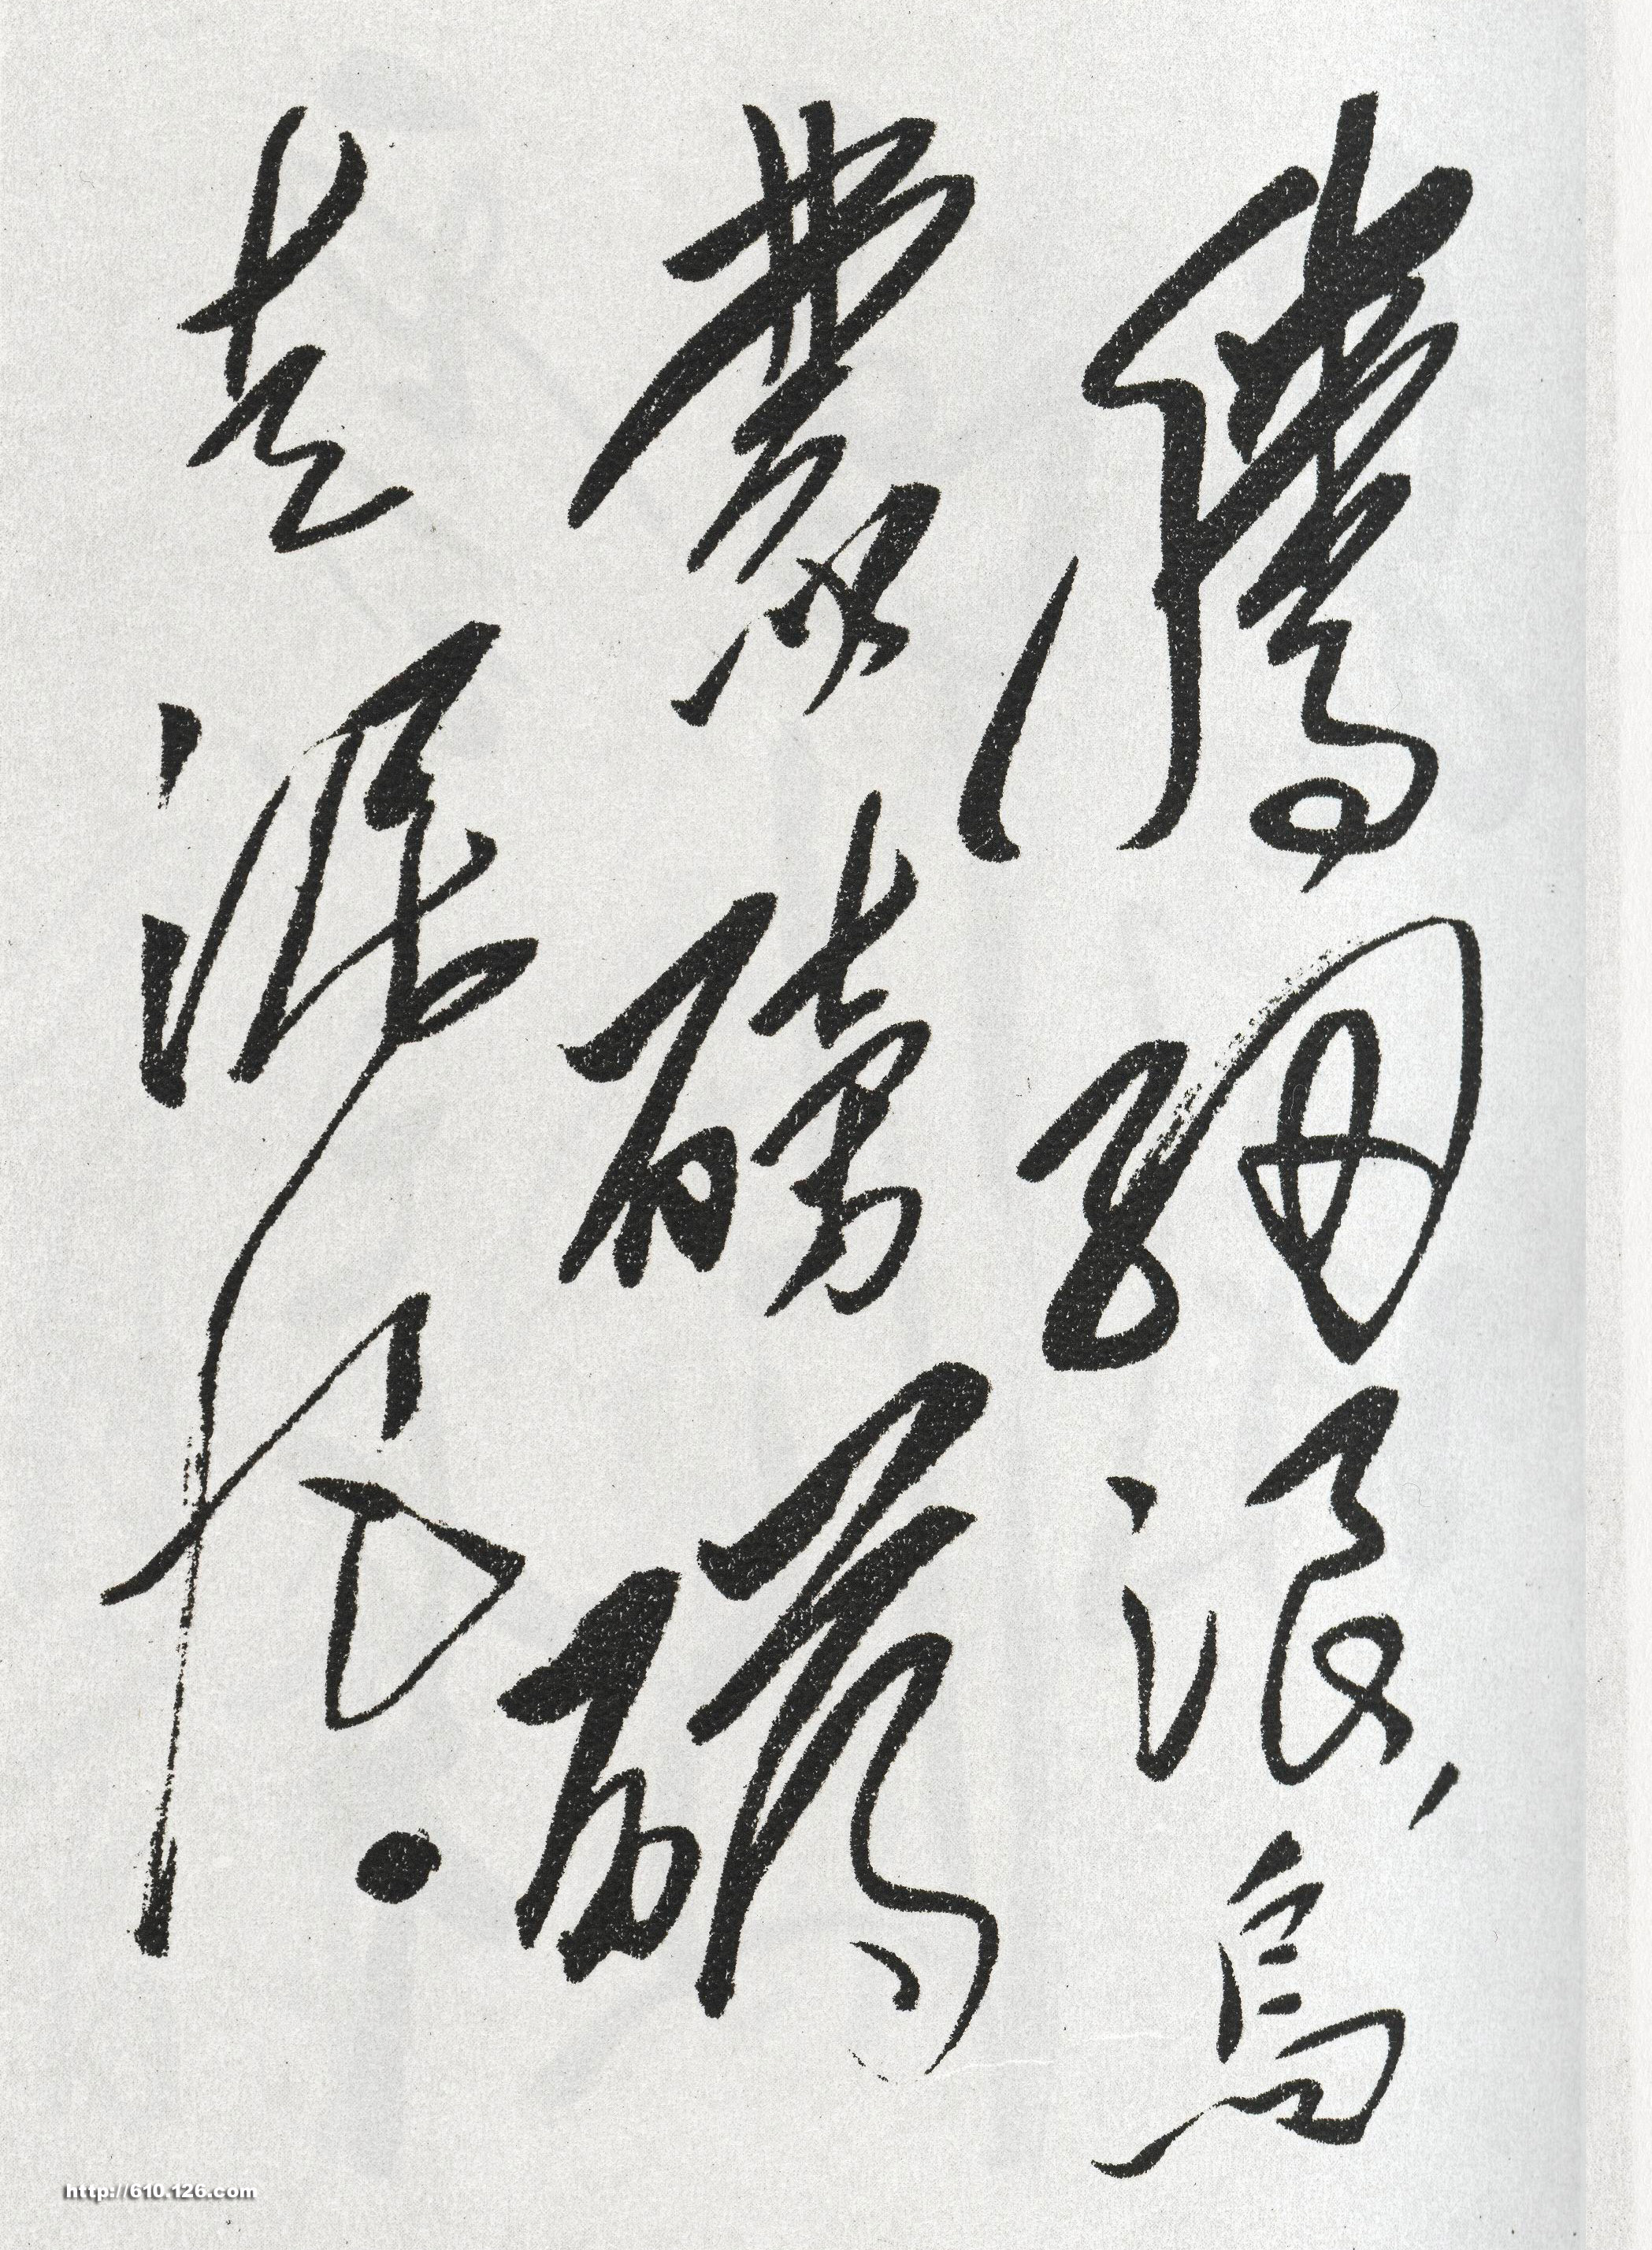 騰細浪,烏
蒙磅礴
走泥丸.
http://610.126.com